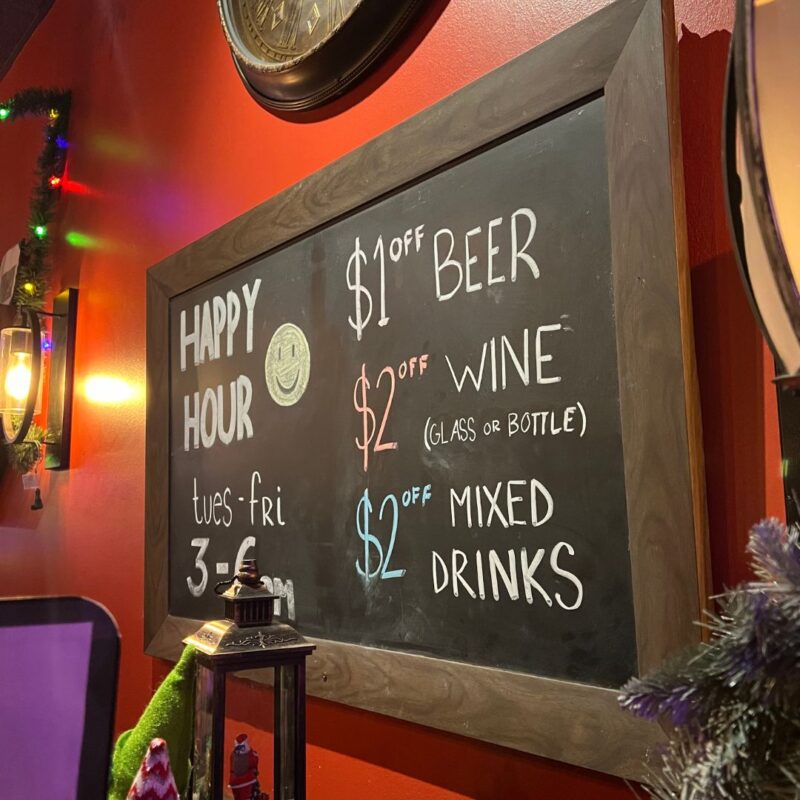 HAPPY
HOUR
tues-fri
3-6pm
$1 OFF BEER
$2 OFF WINE
(GLASS OR BOTTLE)
$2 OFF MIXED
DRINKS